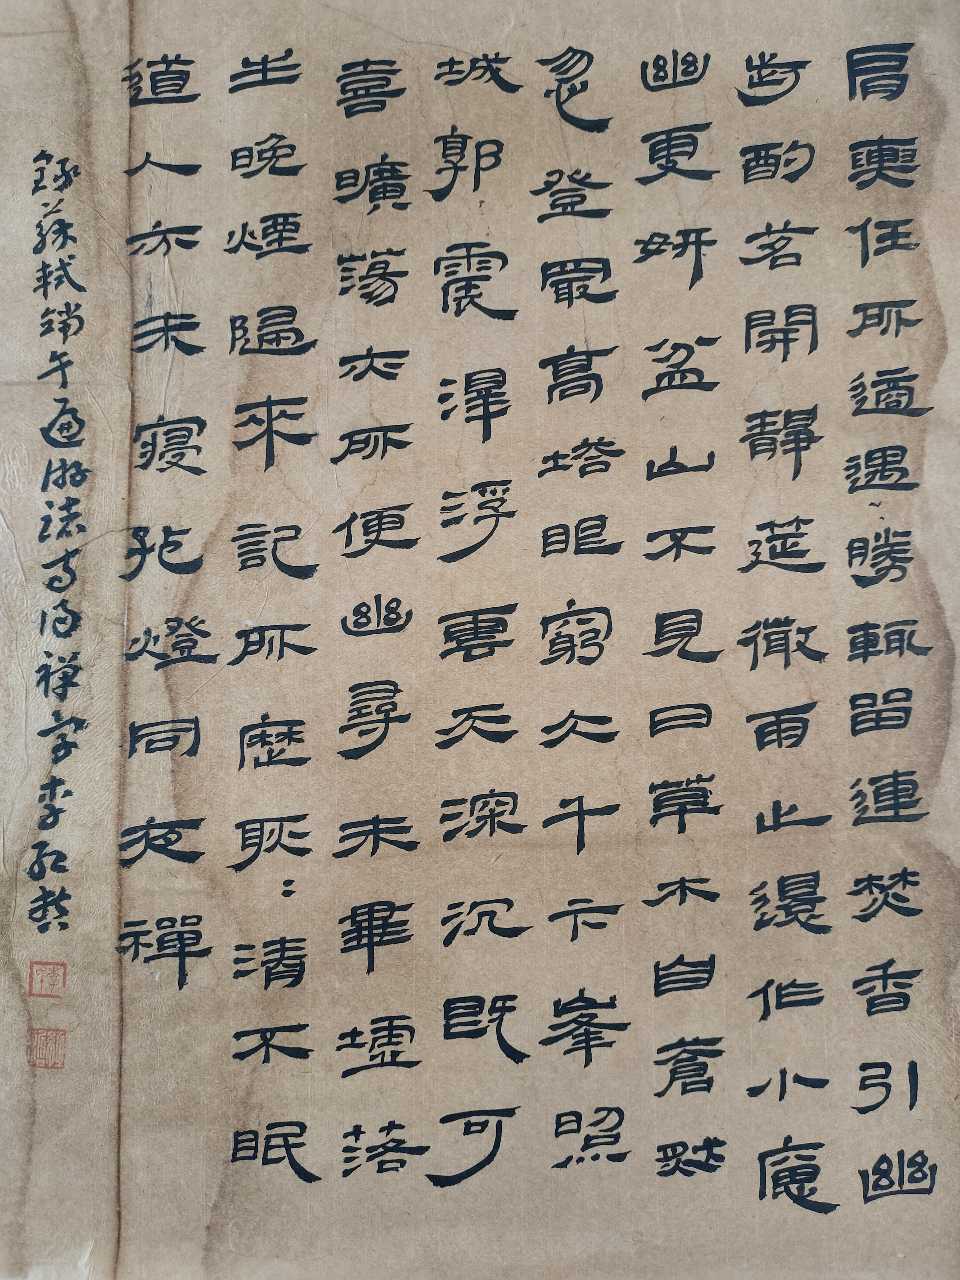 肩輿任所適遇勝輒留連焚香引幽
步酌茗開靜筵微雨止還作小窻
幽更妍盆山不見日草木自蒼然
忽登最高塔眼窮大千卞峯照
城郭震澤浮雲天深沉既可
喜曠蕩亦所便幽尋未畢墟落
生晚煙歸來記所歷耿：清不眠
道人亦未寢孤燈同夜禪
錄蘇軾端午遍游諸寺得禪字李紅